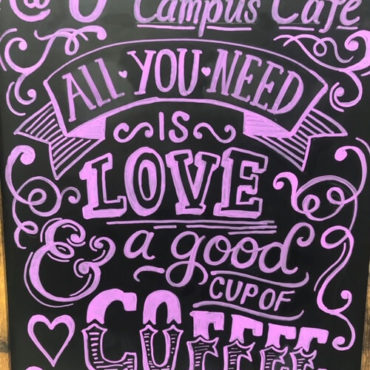 @ Campus Cafe
ALL • YOU • NEED
IS
LOVE
& a good
CUP OF
COFFEE